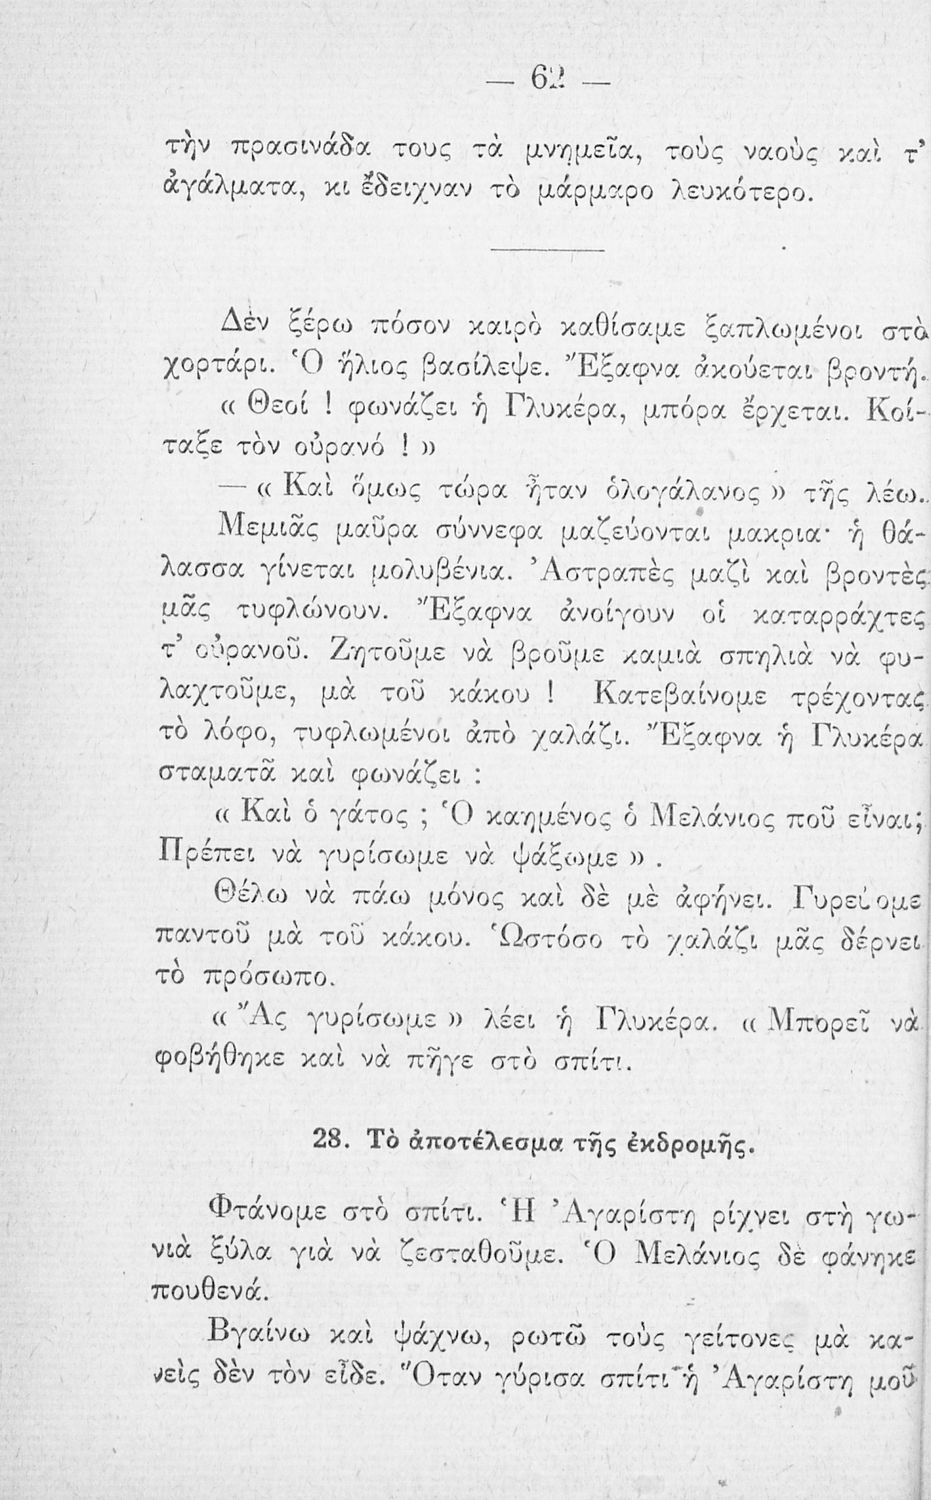 — 62 —
τὴν πρασινάδα τους τὰ μνημεῖα, τοὺς ναοὺς καὶ τ'
ἀγάλματα, κι ἔδειχναν τὸ μάρμαρο λευκότερο.
Δὲν ξέρω πόσον καιρὸ καθίσαμε ξαπλωμένοι στὸ
χορτάρι. Ὁ ἥλιος βασίλεψε. Ἔξαφνα ἀκούεται βροντή.
« Θεοί ! φωνάζει ἡ Γλυκέρα, μπόρα ἔρχεται. Κοί-
ταξε τὸν οὐρανό ! »
— « Καὶ ὅμως τώρα ἦταν ὁλογάλανος » τῆς λέω.
Μεμιᾶς μαῦρα σύννεφα μαζεύονται μακρια· ἡ θά-
λασσα γίνεται μολυβένια. Ἀστραπὲς μαζὶ καὶ βροντὲς
μᾶς τυφλώνουν. Ἔξαφνα ἀνοίγουν οἱ καταρράχτες
τ' οὐρανοῦ. Ζητοῦμε νὰ βροῦμε καμιὰ σπηλιὰ νὰ φυ-
λαχτοῦμε, μὰ τοῦ κάκου ! Κατεβαίνομε τρέχοντας
τὸ λόφο, τυφλωμένοι ἀπὸ χαλάζι. Ἔξαφνα ἡ Γλυκέρα
σταματᾶ καὶ φωνάζει :
« Καὶ ὁ γάτος ; Ὁ καημένος ὁ Μελάνιος ποῦ εἶναι;
Πρέπει νὰ γυρίσωμε νὰ ψάξωμε » .
Θέλω νὰ πάω μόνος καὶ δὲ μὲ ἀφήνει. Γυρεύομε
παντοῦ μὰ τοῦ κάκου. Ὡστόσο τὸ χαλάζι μᾶς δέρνει
τὸ πρόσωπο.
« Ἂς γυρίσωμε » λέει ἡ Γλυκέρα. « Μπορεῖ νὰ
φοβήθηκε καὶ νὰ πῆγε στὸ σπίτι.
28. Τὸ ἀποτέλεσμα τῆς ἐκδρομῆς.
Φτάνομε στὸ σπίτι. Ἡ Ἀγαρίστη ρίχνει στὴ γω-
νιὰ ξύλα γιὰ νὰ ζεσταθοῦμε. Ὁ Μελάνιος δὲ φάνηκε
πουθενά.
Βγαίνω καὶ ψάχνω, ρωτῶ τοὺς γείτονες μὰ κα-
νεὶς δὲν τὸν εἶδε. Ὅταν γύρισα σπίτι ἡ Ἀγαρίστη μοῦ